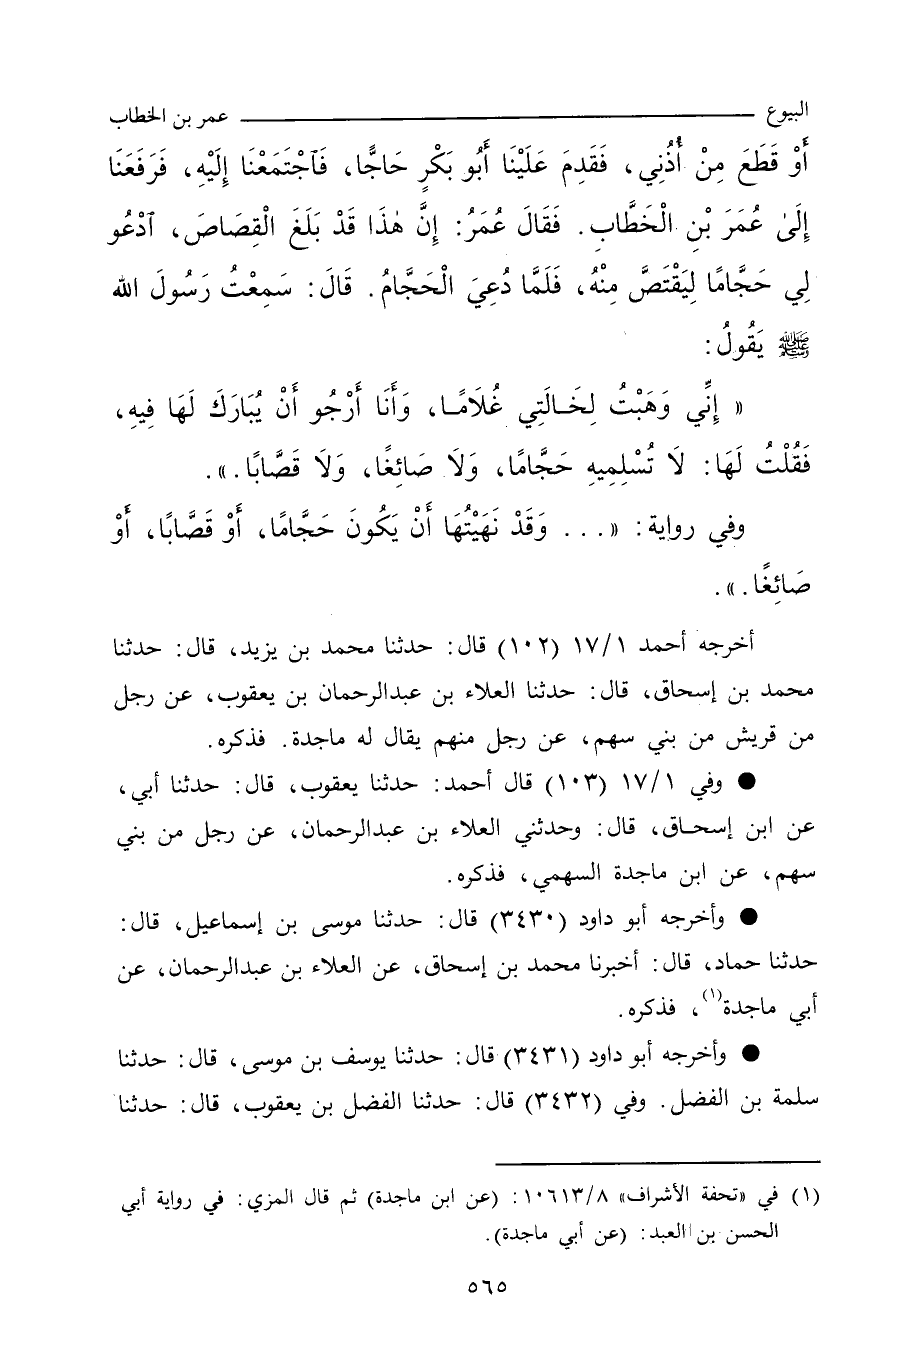 البيوع ــــــ عمر بن الخطاب
أَوْ قَطَعَ مِنْ أُذُنِي، فَقَدِمَ عَلَيْنَا أَبُو بَكْرٍ حَاجًّا، فَاجْتَمَعْنَا إِلَيْهِ، فَرَفَعَنَا
إِلَىٰ عُمَرَ بْنِ الْخَطَّابِ. فَقَالَ عُمَرُ: إِنَّ هٰذَا قَدْ بَلَغَ الْقِصَاصَ، ادْعُو
لِي حَجَّامًا لِيَقْتَصَّ مِنْهُ، فَلَمَّا دُعِيَ الْحَجَّامُ. قَالَ: سَمِعْتُ رَسُولَ الله
ﷺ يَقُولُ:
« إِنِّي وَهَبْتُ لِخَالَتِي غُلَامًا، وَأَنَا أَرْجُو أَنْ يُبَارَكَ لَهَا فِيهِ،
فَقُلْتُ لَهَا: لَا تُسْلِمِيهِ حَجَّامًا، وَلَا صَائِغًا، وَلَا قَصَّابًا.».
وفي رواية: «... وَقَدْ نَهَيْتُهَا أَنْ يَكُونَ حَجَّامًا، أَوْ قَصَّابًا، أَوْ
صَائِغًا.».
أخرجه أحمد ١/ ١٧ (١٠٢) قال: حدثنا محمد بن يزيد، قال: حدثنا
محمد بن إسحاق، قال: حدثنا العلاء بن عبدالرحمان بن يعقوب، عن رجل
من قريش من بني سهم، عن رجل منهم يقال له ماجدة. فذكره.
● وفي ١/ ١٧ (١٠٣) قال أحمد: حدثنا يعقوب، قال: حدثنا أبي،
عن ابن إسحاق، قال: وحدثني العلاء بن عبدالرحمان، عن رجل من بني
سهم، عن ابن ماجدة السهمي، فذكره.
● وأخرجه أبو داود (٣٤٣٠) قال: حدثنا موسى بن إسماعيل، قال:
حدثنا حماد، قال: أخبرنا محمد بن إسحاق، عن العلاء بن عبدالرحمان، عن
أبي ماجدة(١)، فذكره.
● وأخرجه أبو داود (٣٤٣١) قال: حدثنا يوسف بن موسى، قال: حدثنا
سلمة بن الفضل. وفي (٣٤٣٢) قال: حدثنا الفضل بن يعقوب، قال: حدثنا
(١) في «تحفة الأشراف» ٨/ ١٠٦١٣: (عن ابن ماجدة) ثم قال المزي: في رواية أبي
الحسن بن العبد: (عن أبي ماجدة).
٥٦٥